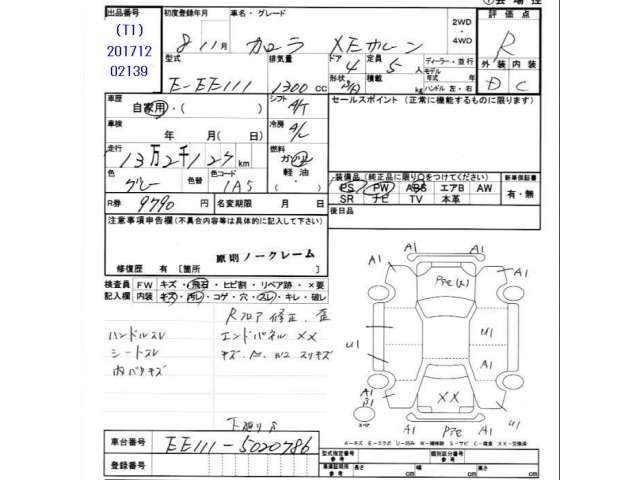 ①会場控
出品番号 初度登録年月 車名・グレード 2WD・4WD 評価点
(T1)
201712
02139
8 11月 カローラ XEサルーン R
型式 排気量 ドア 定員 ディーラー・並行 外装 内装
E-EE111 1300cc 4 5人 モデル年式 年
形状 積載 kg ハンドル 左・右 D C
車歴 自家用・( ) シフト A/T セールスポイント (正常に機能するものに限ります)
車検 年 月( 日) 冷房 A/C
走行 13万2千127km 燃料 ガソリン 軽油・
色 グレー 色替 色コード 1A5
装備品 (純正品に限り○をつけてください) 新車保証書
PS PW ABS エアB AW 有・無
SR ナビ TV 本革
R券 9790円 名変期限 月 日 後日品
注意事項申告欄 (不具合内容等は具体的に記入して下さい)
原則ノークレーム
修復歴 有 [箇所 ]
検査員記入欄 FW キズ・飛石・ヒビ割・リペア跡・×要
内装 キズ・汚レ・コゲ・穴・スレ・キレ・破レ
Rフロア修正、歪
ハンドルスレ エンドパネルXX
シートスレ
内バリキズ
下廻りサ
A1 A1 A1 A1
U1 U1
A1 A1
B1 XX
A1 A1 U1
車台番号 EE111-5020786
登録番号
型式指定番号 参考 類別区分番号 参考
長さ cm 幅 cm 高さ cm